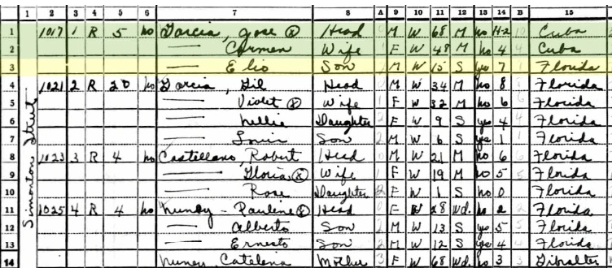 1 2 3 4 5 6 7 8 A 9 10 11 12 13 14 B 15
1 1017 1 R 5 no Garcia, Jose ⓧ Head M W 68 M no H-2 Cuba
2 — Carmen Wife 1 F W 48 M no 4 Cuba
3 — Elio Son M W 15 S yes 7 Florida
4 1021 2 R 20 no Garcia, Gil Head M W 34 M no 8 Florida
5 — Violet ⓧ Wife 1 F W 32 M no 6 Florida
6 — Nellie Daughter F W 9 S yes 4 Florida
7 — Louis Son M W 6 S yes 1 Florida
8 1023 3 R 4 no Castellano, Robert Head M W 21 M no 6 Florida
9 — Gloria ⓧ Wife 1 F W 19 M no 5 Florida
10 — Rose Daughter F W 1 S no 0 Florida
11 1025 4 R 4 no Nunez - Pauline ⓧ Head F W 28 Wd. no 2 Florida
12 — Alberto Son M W 13 S yes 5 Florida
13 — Ernesto Son M W 12 S yes 4 Florida
14 Nunez Catalena Mother F W 68 Wd no 3 Gibralter
Simonton Street